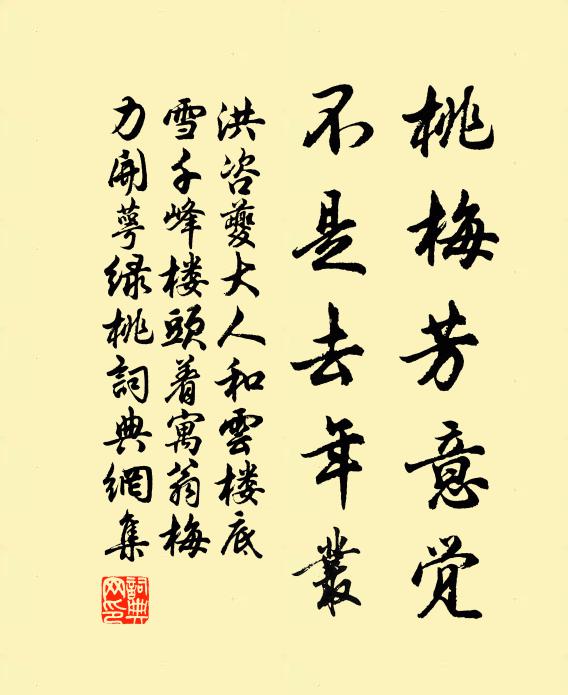 桃梅芳意觉
不是去年叢
洪咨夔大人和雲楼底
雪千峰楼頭着寓翁梅
力開萼绿桃詞典網集
詞典网印